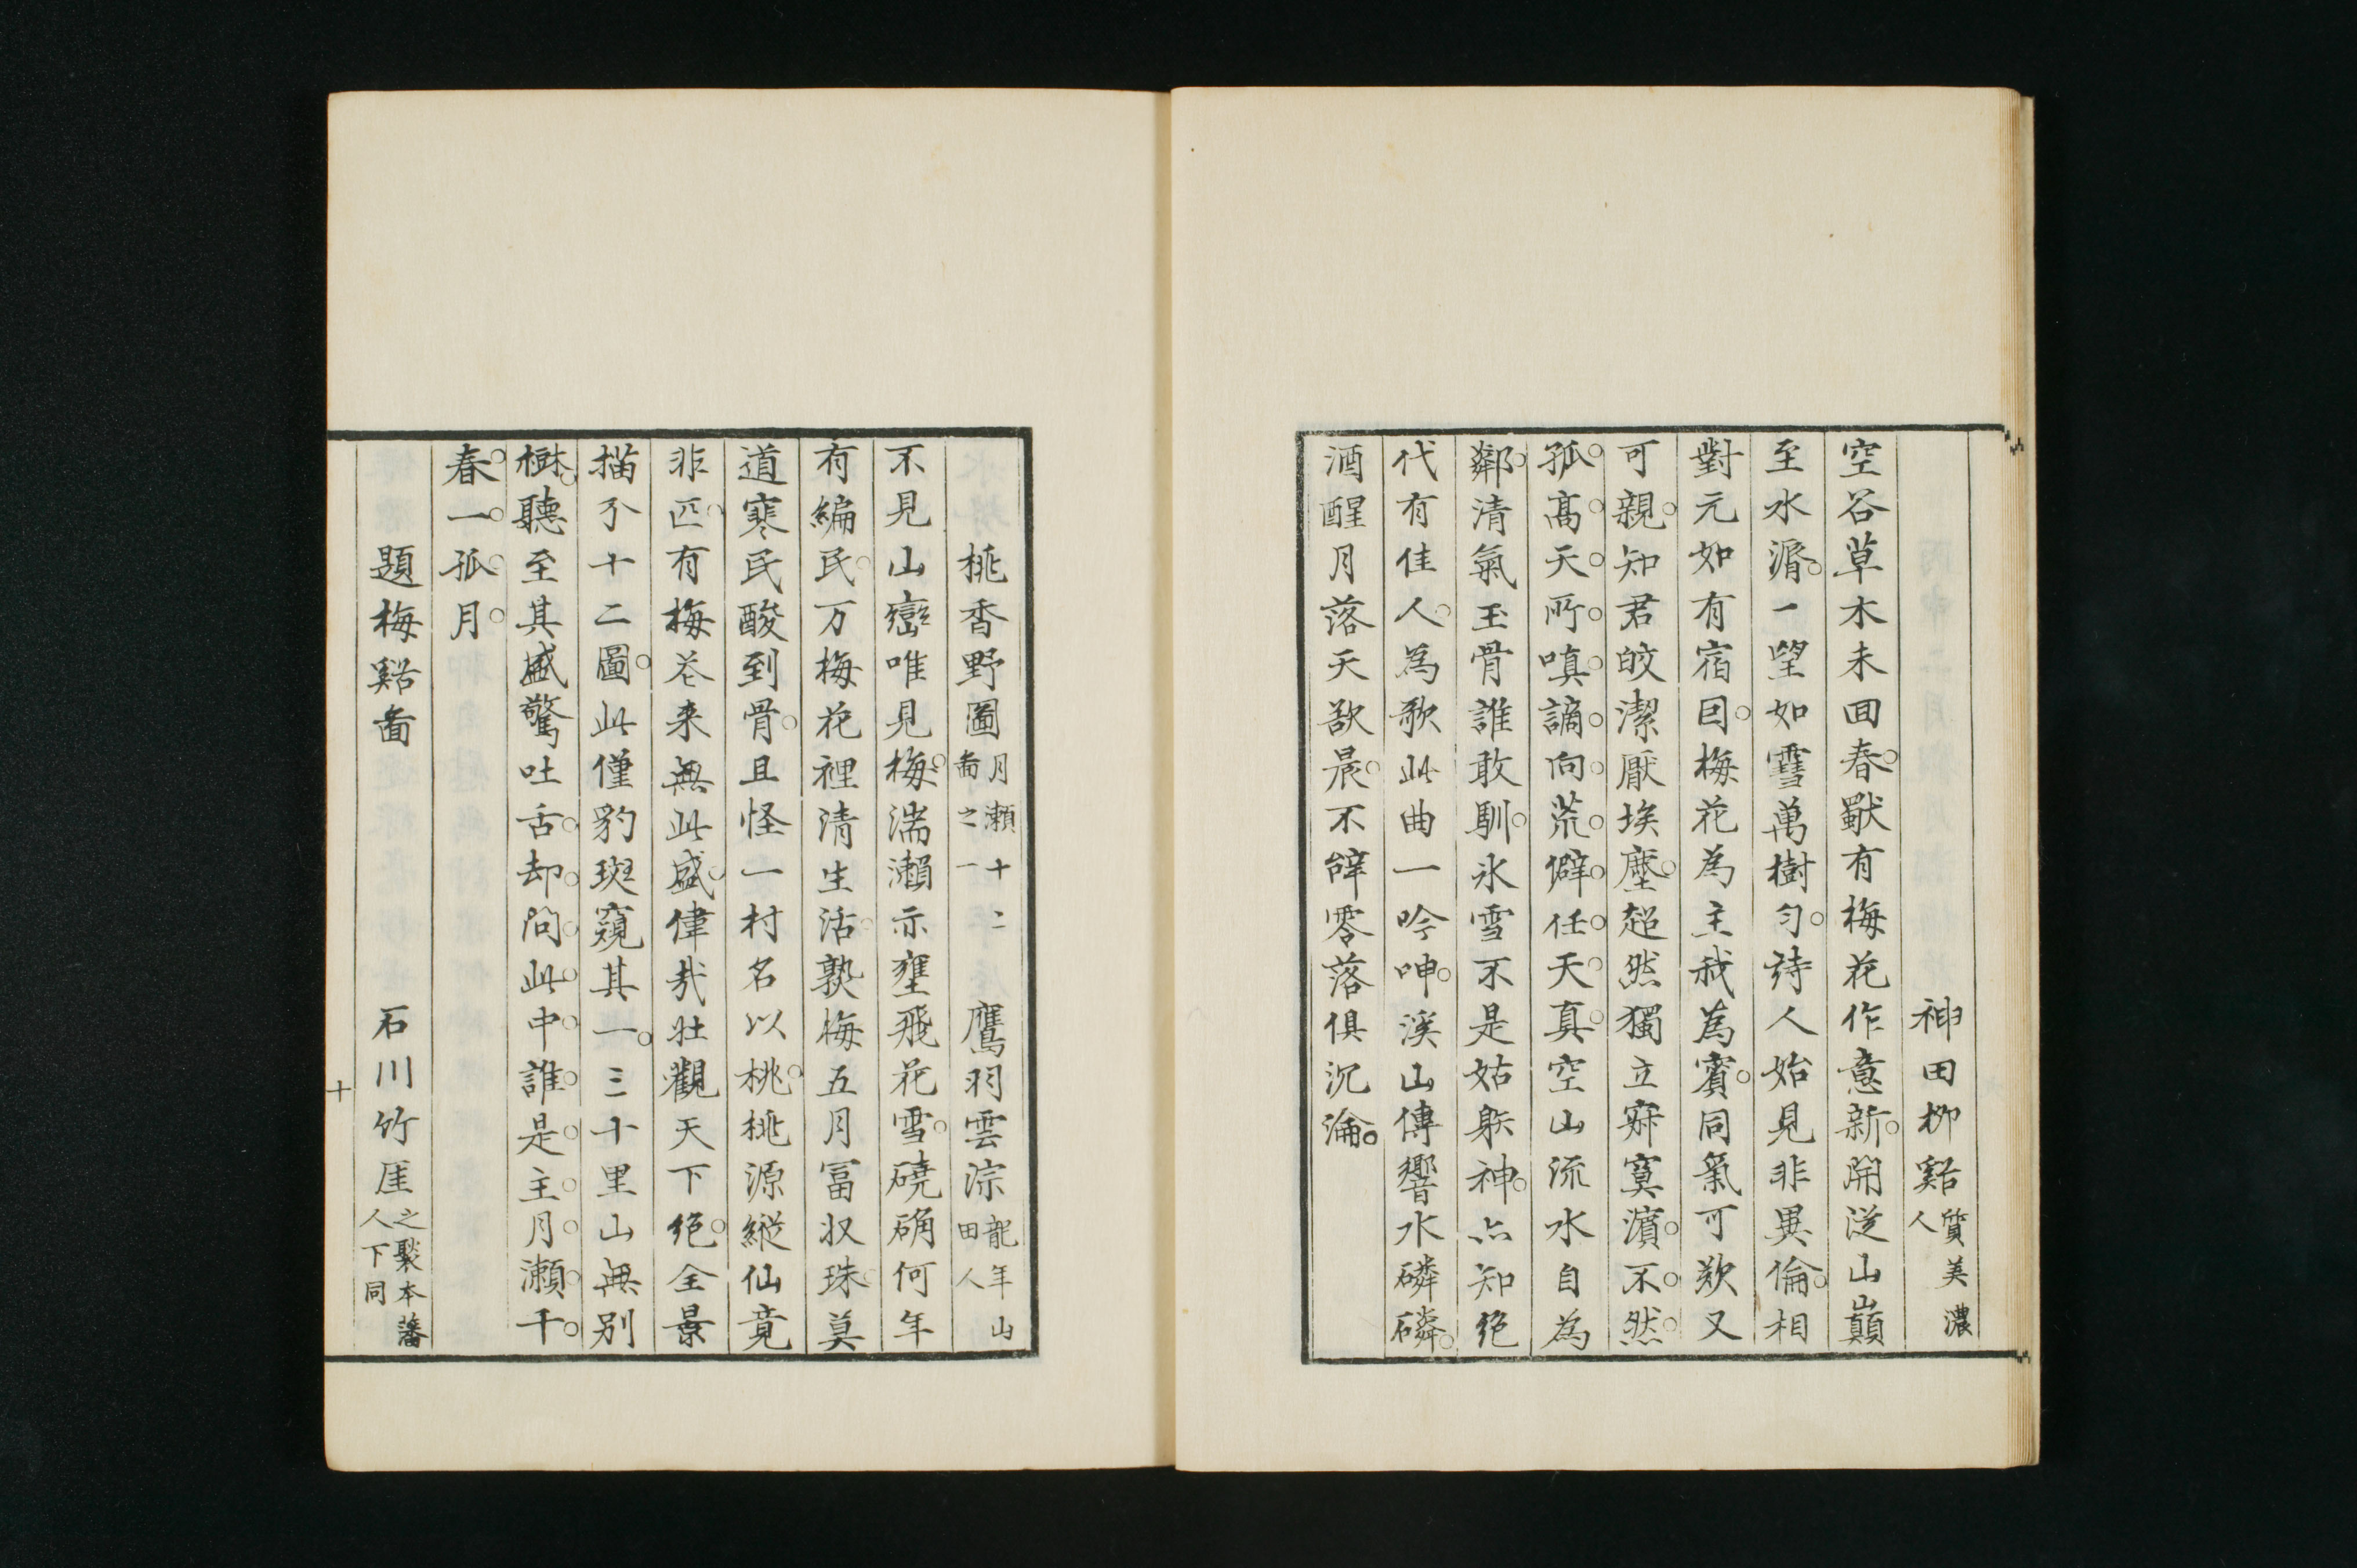 神田柳谿質美濃人
空谷草木未回春獣有梅花作意新開従山巓
至水湣一望如雪萬樹匀詩人始見非異倫相
對元如有宿因梅花為主我為賓同氣可歎又
可親知君皎潔厭埃塵超然獨立寂寞濱不然
孤高天所嗔謫向荒僻任天真空山流水自為
鄰清氣玉骨誰敢馴氷雪不是姑躲神亦知絶
代有佳人為歌此曲一吟呻溪山傳響水磷磷
酒醒月落天欲晨不辭零落俱沉淪
桃香野圖月瀬十二啚之一鷹羽雲淙龍年山田人
不見山巒唯見梅湍瀬示壅飛花雪磽确何年
有編民万梅花裡清生活熟梅五月冨収珠莫
道寒民酸到骨且怪一村名以桃桃源縦仙竟
非匹有梅花来無此盛偉哉壮觀天下絶全景
描分十二圖此僅豹斑窺其一三十里山無別
樹聽至其盛驚吐舌却問此中誰是主月瀬千
春一孤月
題梅谿啚石川竹厓之褧本藩人下同
十